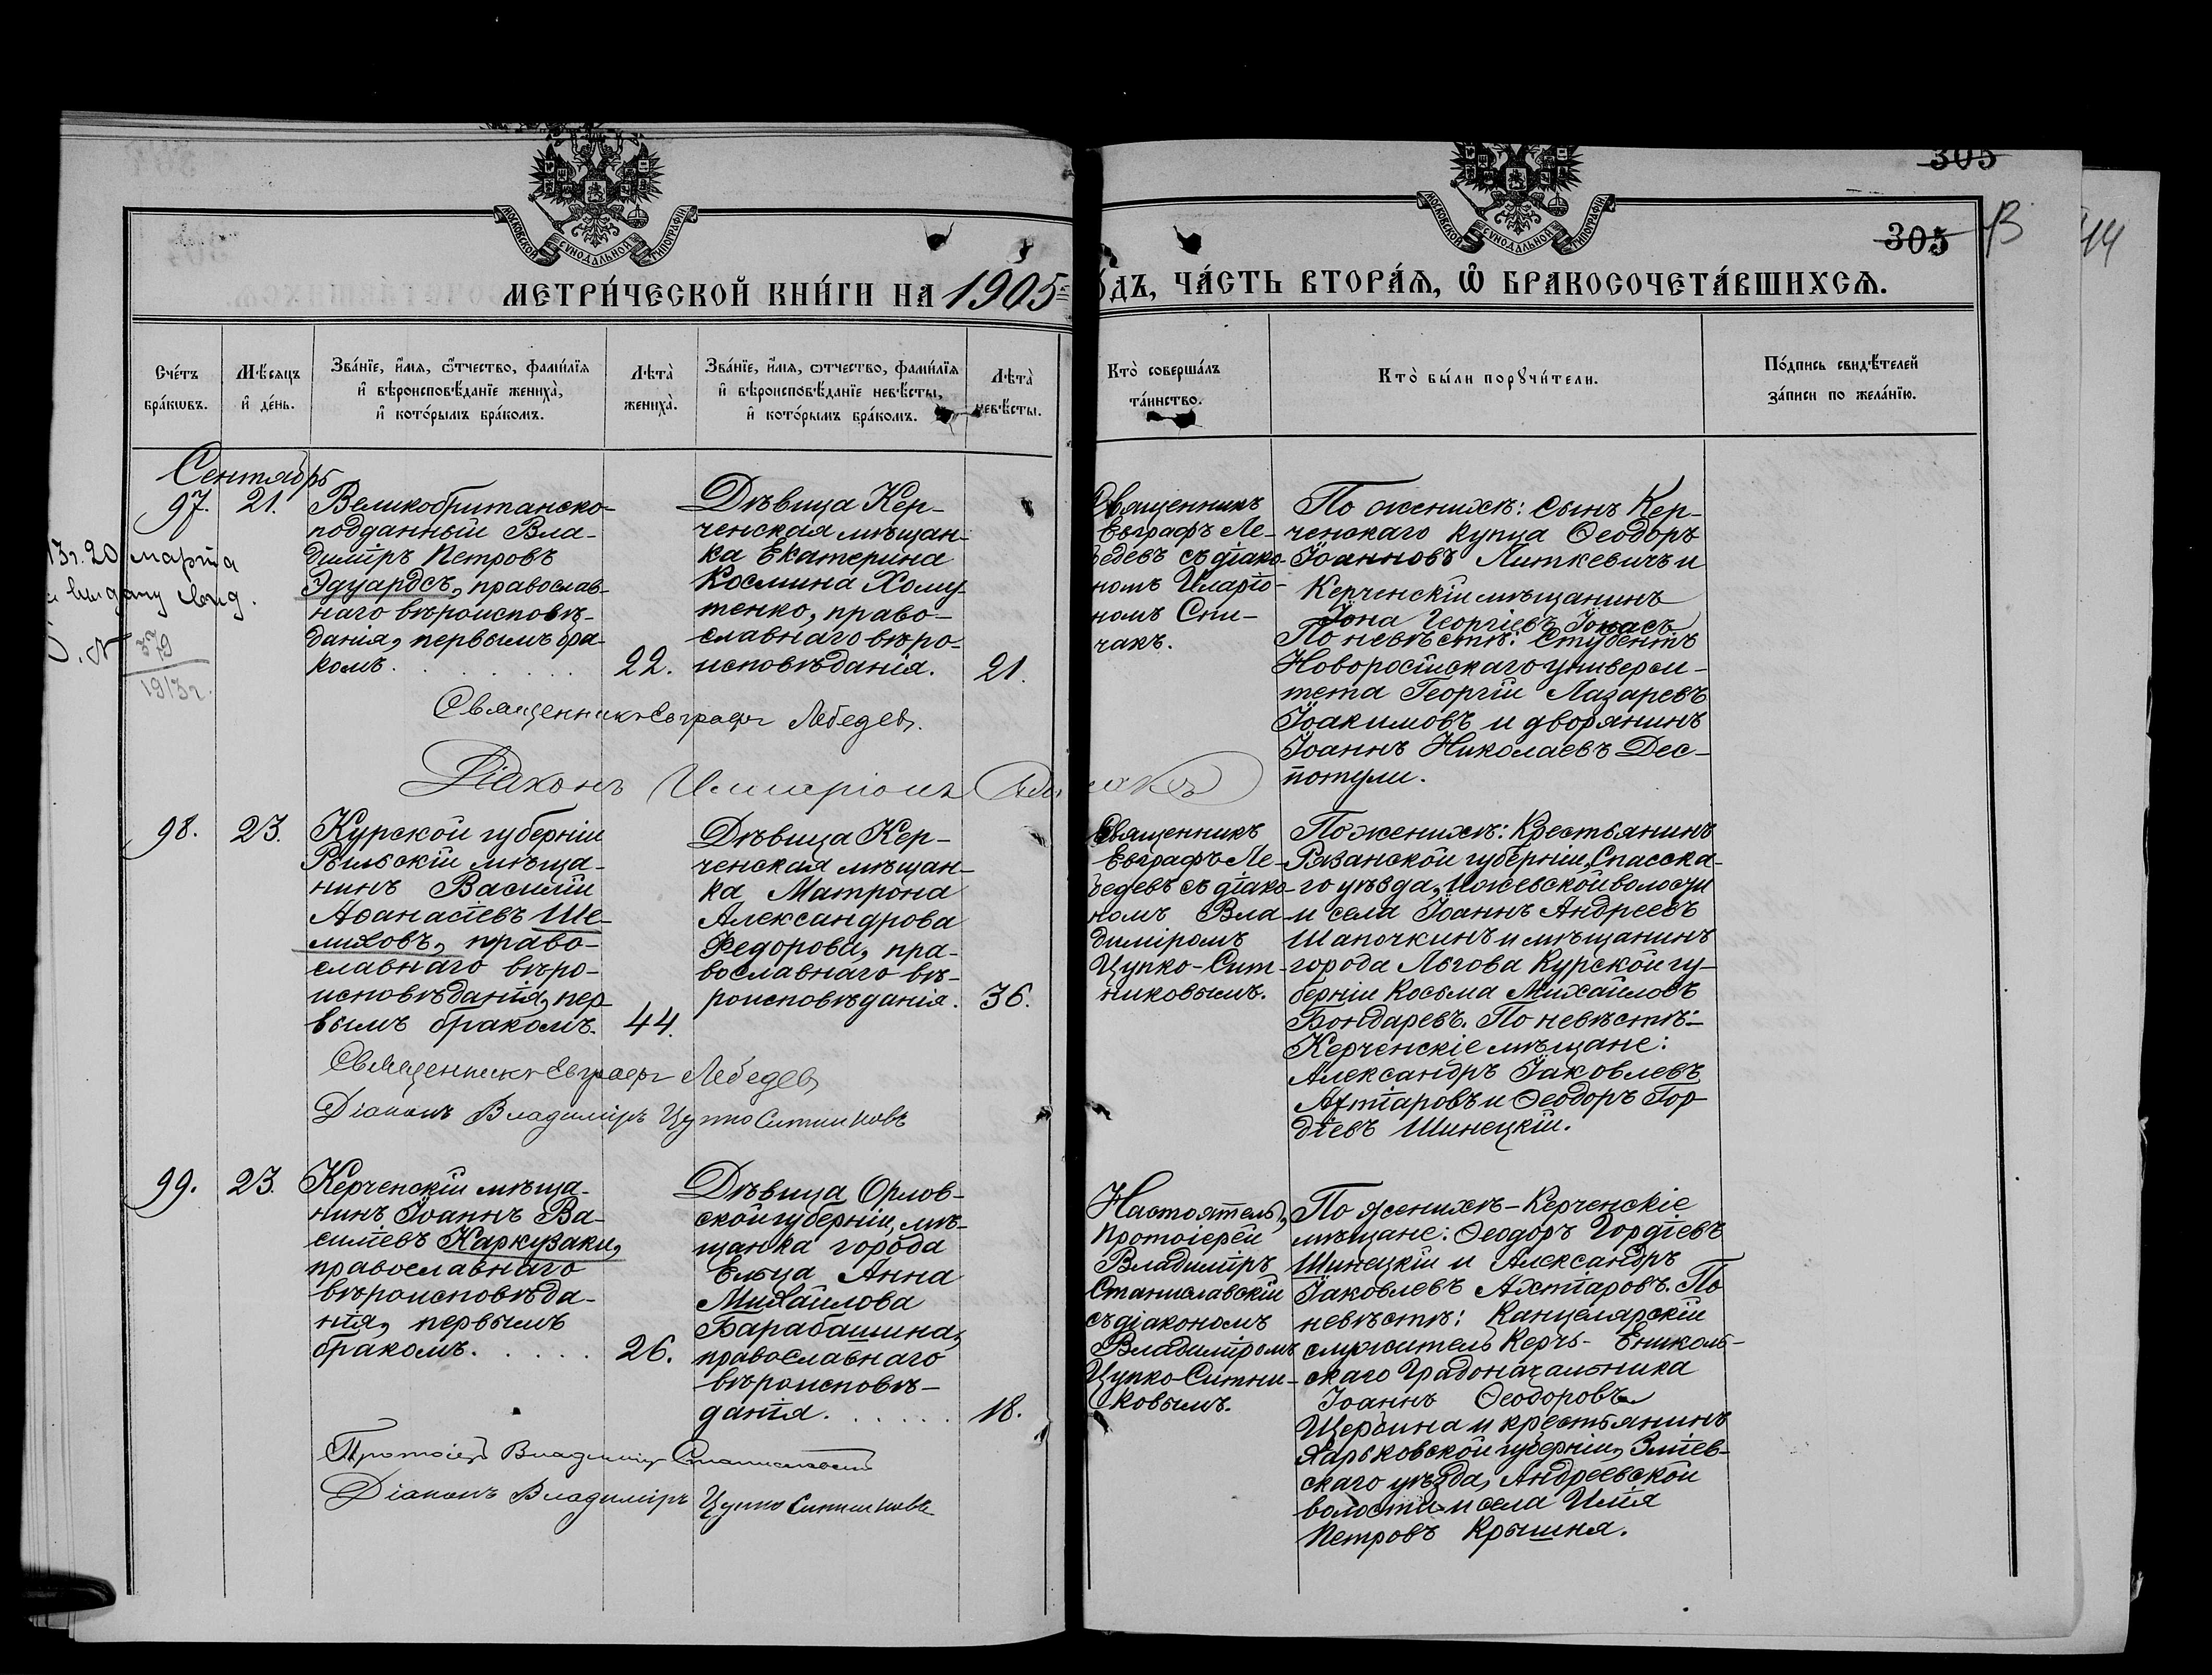 305
МОСКОВСКОЙ СѴНОДАЛЬНОЙ ТИПОГРАФІИ
МОСКОВСКОЙ СѴНОДАЛЬНОЙ ТИПОГРАФІИ
305
13
44
МЕТРИ́ЧЕСКОЙ КНИ́ГИ НА 1905
ОДЪ, ЧА́СТЬ ВТОРА́Ѧ, Ѿ БРАКОСОЧЕТА́ВШИХСѦ.
Сче́тъ
бра́кѡвъ.
Мѣ́сяцъ
и҆ де́нь.
Зва́нїе, и҆́мѧ, ѻ҆́тчество, фами́лїѧ
и҆ вѣроисповѣ́данїе жениха̀,
и҆ кото́рымъ бра́комъ.
Лѣ́та̀
жениха̀.
Зва́нїе, и҆́мѧ, ѻ҆́тчество, фами́лїѧ
и҆ вѣроисповѣ́данїе невѣ́сты,
и҆ кото́рымъ бра́комъ.
Лѣ́та̀
невѣ́сты.
Кто̀ соверша́лъ
та́инство.
Кто̀ бы́ли порꙋчи́тели.
По́дпись свидѣ́телей
за́писи по жела́нїю.
Сентябрь
97.
21.
Великобританско-
подданный Вла-
диміръ Петровъ
Эдуардсъ, православ-
наго вѣроисповѣ-
данія, первымъ бра-
комъ.
22.
Дѣвица Кер-
ченская мѣщан-
ка Екатерина
Космина Хому-
тенко, право-
славнаго вѣро-
исповѣданія.
21.
Священникъ
Евграфъ Ле-
бедевъ съ діако-
номъ Иларіо-
номъ Спи-
чакъ.
По женихѣ: сынъ Кер-
ченскаго купца Ѳеодоръ
Іоанновъ Литкевичъ и
Керченскій мѣщанинъ
Іона Георгіевъ Іонасъ
По невѣстѣ: Студентъ
Новоросійскаго универси-
тета Георгій Лазаревъ
Іоакимовъ и дворянинъ
Іоаннъ Николаевъ Дес-
потули.
13 г. 20 марта
выдану свид.
1913 г.
Священникъ Евграфъ Лебедевъ.
Діаконъ Иларіонъ
98.
23.
Курской губерніи
Рыльскій мѣща-
нинъ Василій
Аѳанасіевъ Ше-
лиховъ, право-
славнаго вѣро-
исповѣданія, пер-
вымъ бракомъ.
44.
Дѣвица Кер-
ченская мѣщан-
ка Матрона
Александрова
Федорова, пра-
вославнаго вѣ-
роисповѣданія.
36.
Священникъ
Евграфъ Ле-
бедевъ съ діако-
номъ Вла-
диміромъ
Цупко-Сит-
никовымъ.
По женихѣ: Крестьянинъ
Рязанской губерніи, Спасска-
го уѣзда, Ижевской волости
и села Іоаннъ Андреевъ
Шапочкинъ и мѣщанинъ
города Льгова Курской гу-
берніи Косьма Михайловъ
Бондаревъ. По невѣстѣ:
Керченскіе мѣщане:
Александръ Іаковлевъ
Ахтіаровъ и Ѳеодоръ Гор-
діевъ Шинецкій.
Священникъ Евграфъ Лебедевъ
Діаконъ Владиміръ Цупко Ситниковъ
99.
23.
Керченскій мѣща-
нинъ Іоаннъ Ва-
силіевъ Каркузаки,
православнаго
вѣроисповѣда-
нія, первымъ
бракомъ.
26.
Дѣвица Орлов-
ской губерніи, мѣ-
щанка города
Ельца Анна
Михайлова
Барабашина,
православнаго
вѣроисповѣ-
данія.
18.
Настоятель,
Протоіерей
Владиміръ
Станиславскій
съ діакономъ
Владиміромъ
Цупко Ситни-
ковымъ.
По женихѣ - Керченскіе
мѣщане: Ѳеодоръ Гордіевъ
Шинецкій и Александръ
Іаковлевъ Ахтіаровъ. По
невѣстѣ: Канцелярскій
служитель Керчь-Ениколь-
скаго Градоначальника
Іоаннъ Ѳеодоровъ
Щербина и крестьянинъ
Харьковской губерніи, Зміев-
скаго уѣзда, Андреевской
волости и села Илія
Петровъ Крышня.
Протоіерей Владиміръ Станиславскій
Діаконъ Владиміръ Цупко Ситниковъ